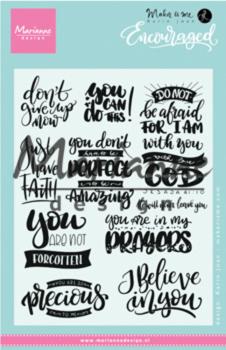 Marianne
design
Make & see
Karin Joan
Encouraged
don't
give up
now
you
CAN DO
THIS!
DO NOT
be afraid
FOR I AM
with you
Just
have
FAITH
you don't
have to be
PERFECT
to be
Amazing
GOD
Marianne
design
JESAJA 41:10
I will never leave you
you
ARE NOT
FORGOTTEN
you are in my
PRAYERS
YOU ARE SO
precious
I Believe
in you
www.mariannedesign.nl